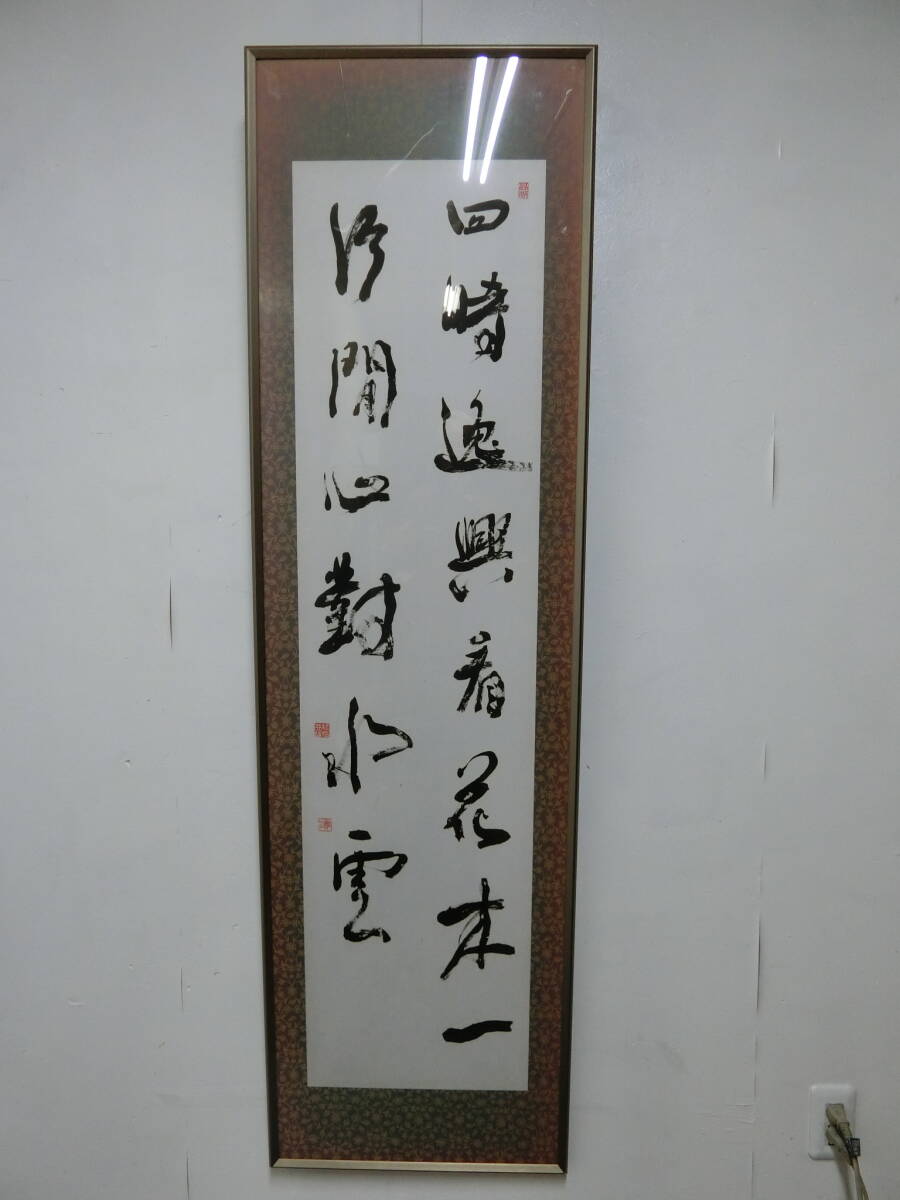 四時逸興看花木一
片閒心對水雲